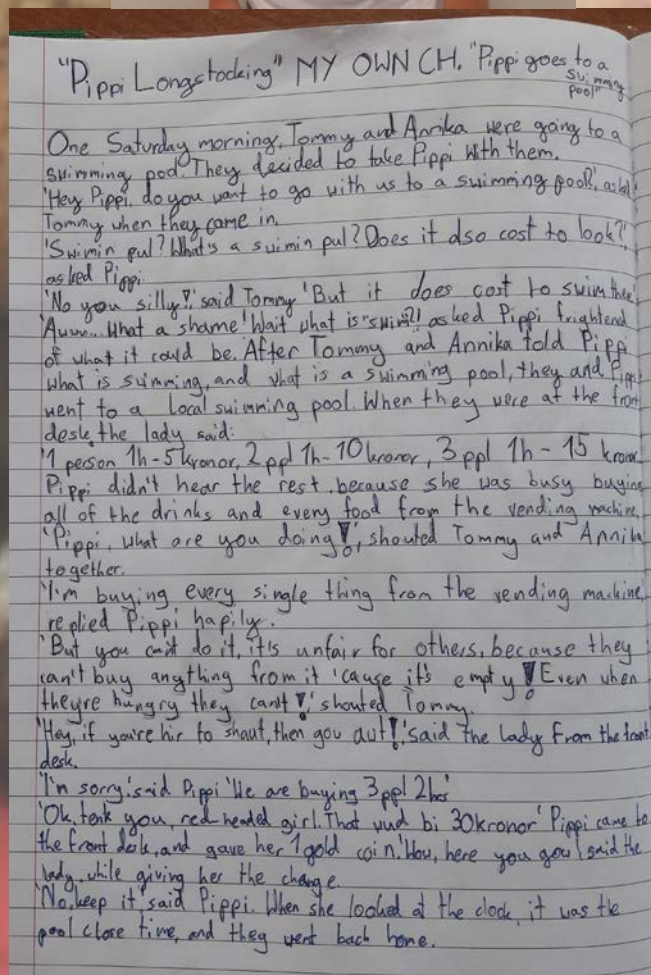 "Pippi Longstocking" MY OWN CH. "Pippi goes to a
swimming
pool"
One Saturday morning, Tommy and Annika were going to a
swimming pool. They decided to take Pippi with them.
'Hey Pippi, do you want to go with us to a swimming pool?', asked
Tommy when they came in.
'Swimin pul? What's a suimin pul? Does it also cost to look?'
asked Pippi.
'No you silly!', said Tommy 'But it does cost to swim there'
'Auww... What a shame! Wait what is "swim"?!' asked Pippi frightend
of what it could be. After Tommy and Annika told Pippi
what is swimming, and what is a swimming pool, they and Pippi
went to a local swimming pool. When they were at the front
desk, the lady said:
'1 person 1h-5kronor, 2 ppl 1h-10kronor, 3 ppl 1h-15 kronor
Pippi didn't hear the rest, because she was busy buying
all of the drinks and every food from the vending machine.
'Pippi, what are you doing!', shouted Tommy and Annika
together.
'I'm buying every single thing from the vending machine,
replied Pippi hapily.
'But you can't do it, it's unfair for others, because they
can't buy anything from it 'cause it's empty! Even when
they're hungry they can't!' shouted Tommy.
'Hey, if you're hir to shaut, then gou aut!' said the lady from the front
desk.
'I'm sorry.' said Pippi 'We are buying 3ppl 2hrs'
'Ok, tenk you, red-headed girl. That vud bi 30kronor' Pippi came to
the front desk, and gave her 1 gold coin. 'Wou, here you gou', said the
lady, while giving her the change.
'No, keep it', said Pippi. When she looked at the clock, it was the
pool close time, and they went back home.